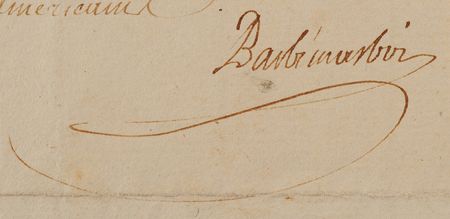 américains
Barbémarbois